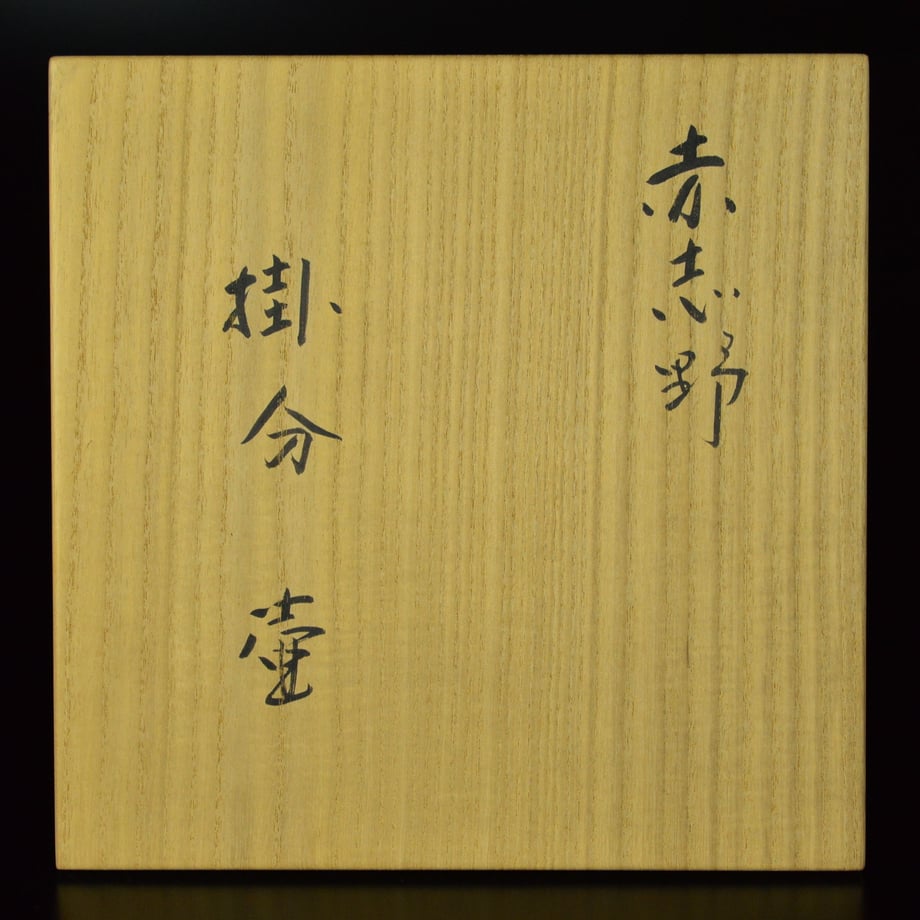 赤志野
掛分壷